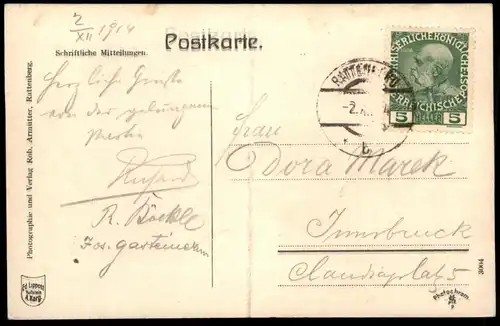 2/XII 1914
Postkarte.
Schriftliche Mitteilungen.
Herzliche Grüsse
von der gelungenen
Richard
R. Böckle
Jos. Gasteiner
Frau
Dora Marek
Innsbruck
Claudiaplatz 5
KAISERLICHE KÖNIGLICHE ÖSTERREICHISCHE POST
5 HELLER 5
RATTENBERG
Photographie und Verlag Rob. Armütter, Rattenberg.
3004
Photochrom